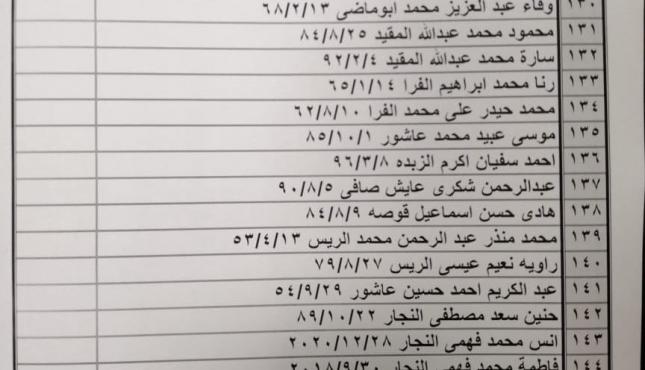 ١٣٠ وفاء عبد العزيز محمد ابوماضى ٦٨/٢/١٣
١٣١ محمود محمد عبدالله المقيد ٨٤/٨/٢٥
١٣٢ سارة محمد عبدالله المقيد ٩٢/٢/٤
١٣٣ رنا محمد ابراهيم الفرا ٦٥/١/١٤
١٣٤ محمد حيدر على محمد الفرا ٦٢/٨/١٠
١٣٥ موسى عبيد محمد عاشور ٨٥/١٠/١
١٣٦ احمد سفيان اكرم الزبده ٩٦/٣/٨
١٣٧ عبدالرحمن شكرى عايش صافى ٩٠/٨/٥
١٣٨ هادى حسن اسماعيل قوصه ٨٤/٨/٩
١٣٩ محمد منذر عبد الرحمن محمد الريس ٥٣/٤/١٣
١٤٠ راويه نعيم عيسى الريس ٧٩/٨/٢٧
١٤١ عبد الكريم احمد حسين عاشور ٥٤/٩/٢٩
١٤٢ حنين سعد مصطفى النجار ٨٩/١٠/٢٢
١٤٣ انس محمد فهمى النجار ٢٠٢٠/١٢/٢٨
١٤٤ فاطمة محمد فهمى النجار ٢٠١٨/٩/٣٠